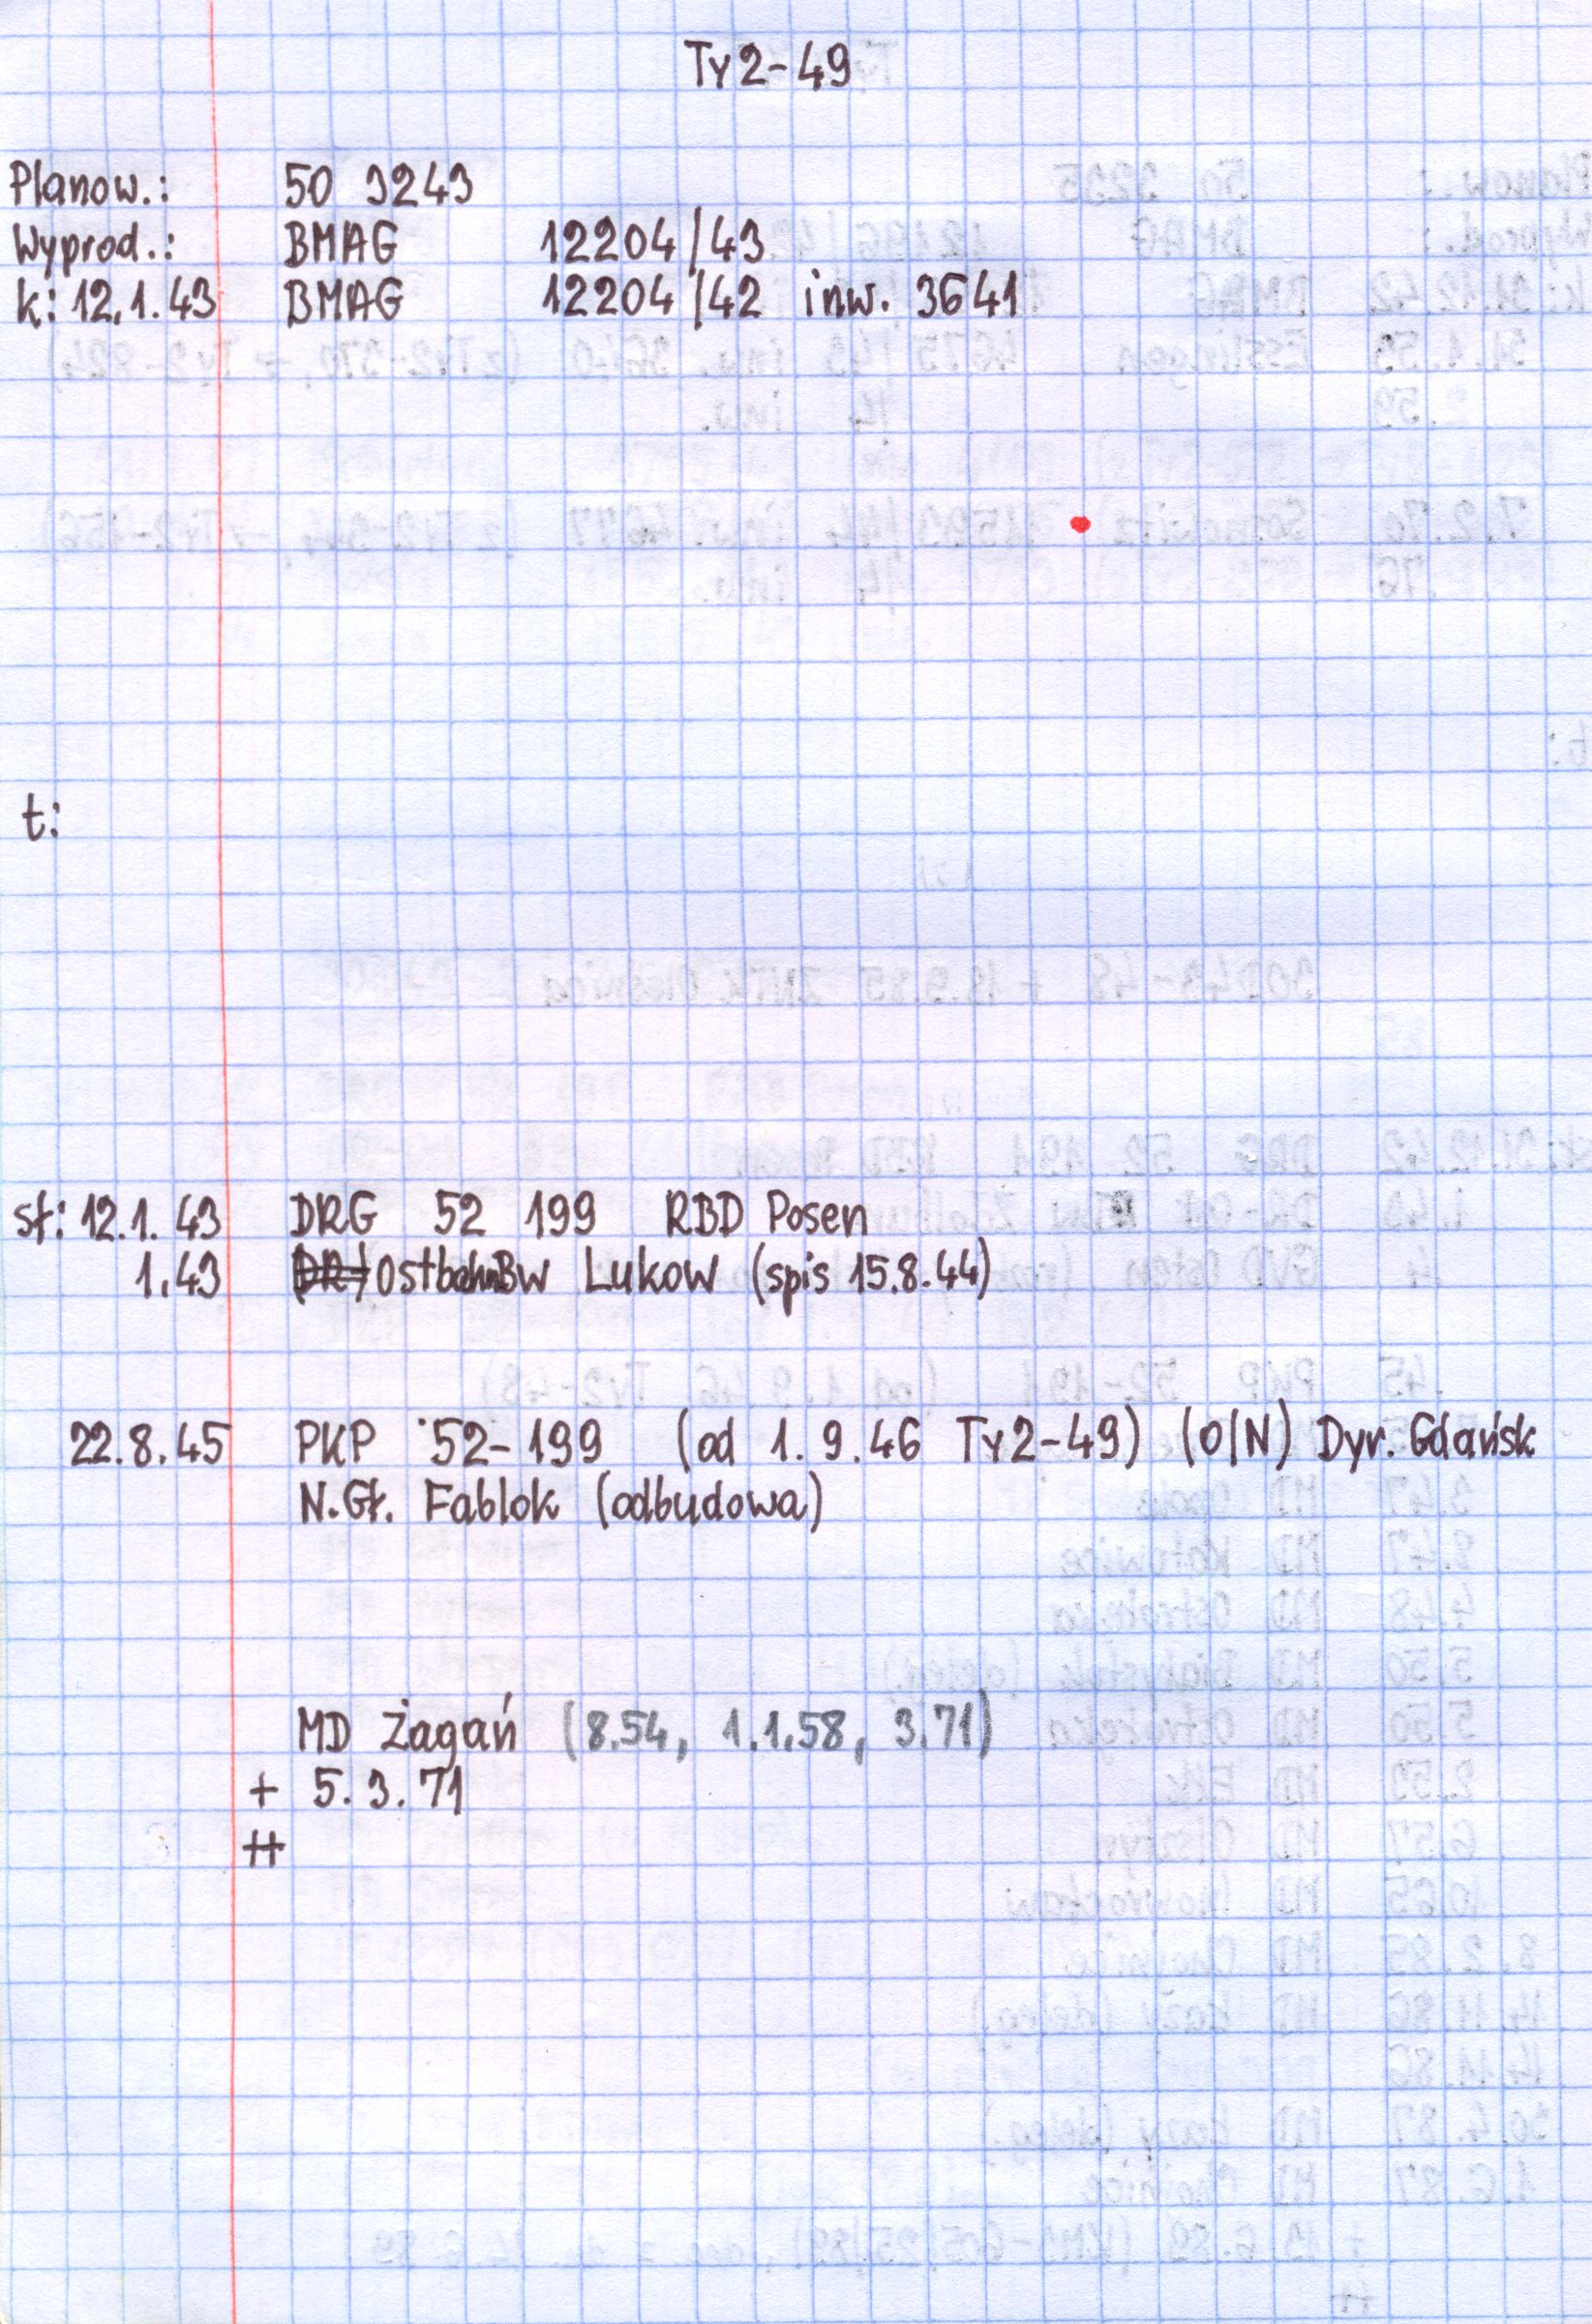 Ty2-49
Planow.: 50 3243
Wyprod.: BMAG 12204/43
k: 12.1.43 BMAG 12204/42 inw. 3641
t:
st: 12.1.43 DRG 52 199 RBD Posen
1.43 Ostbahn Bw Lukow (spis 15.8.44)
22.8.45 PKP 52-199 (od 1.9.46 Ty2-49) (O/N) Dyr. Gdańsk
N.Gł. Fablok (odbudowa)
MD Żagań (8.54, 1.1.58, 3.71)
+ 5.3.71
++